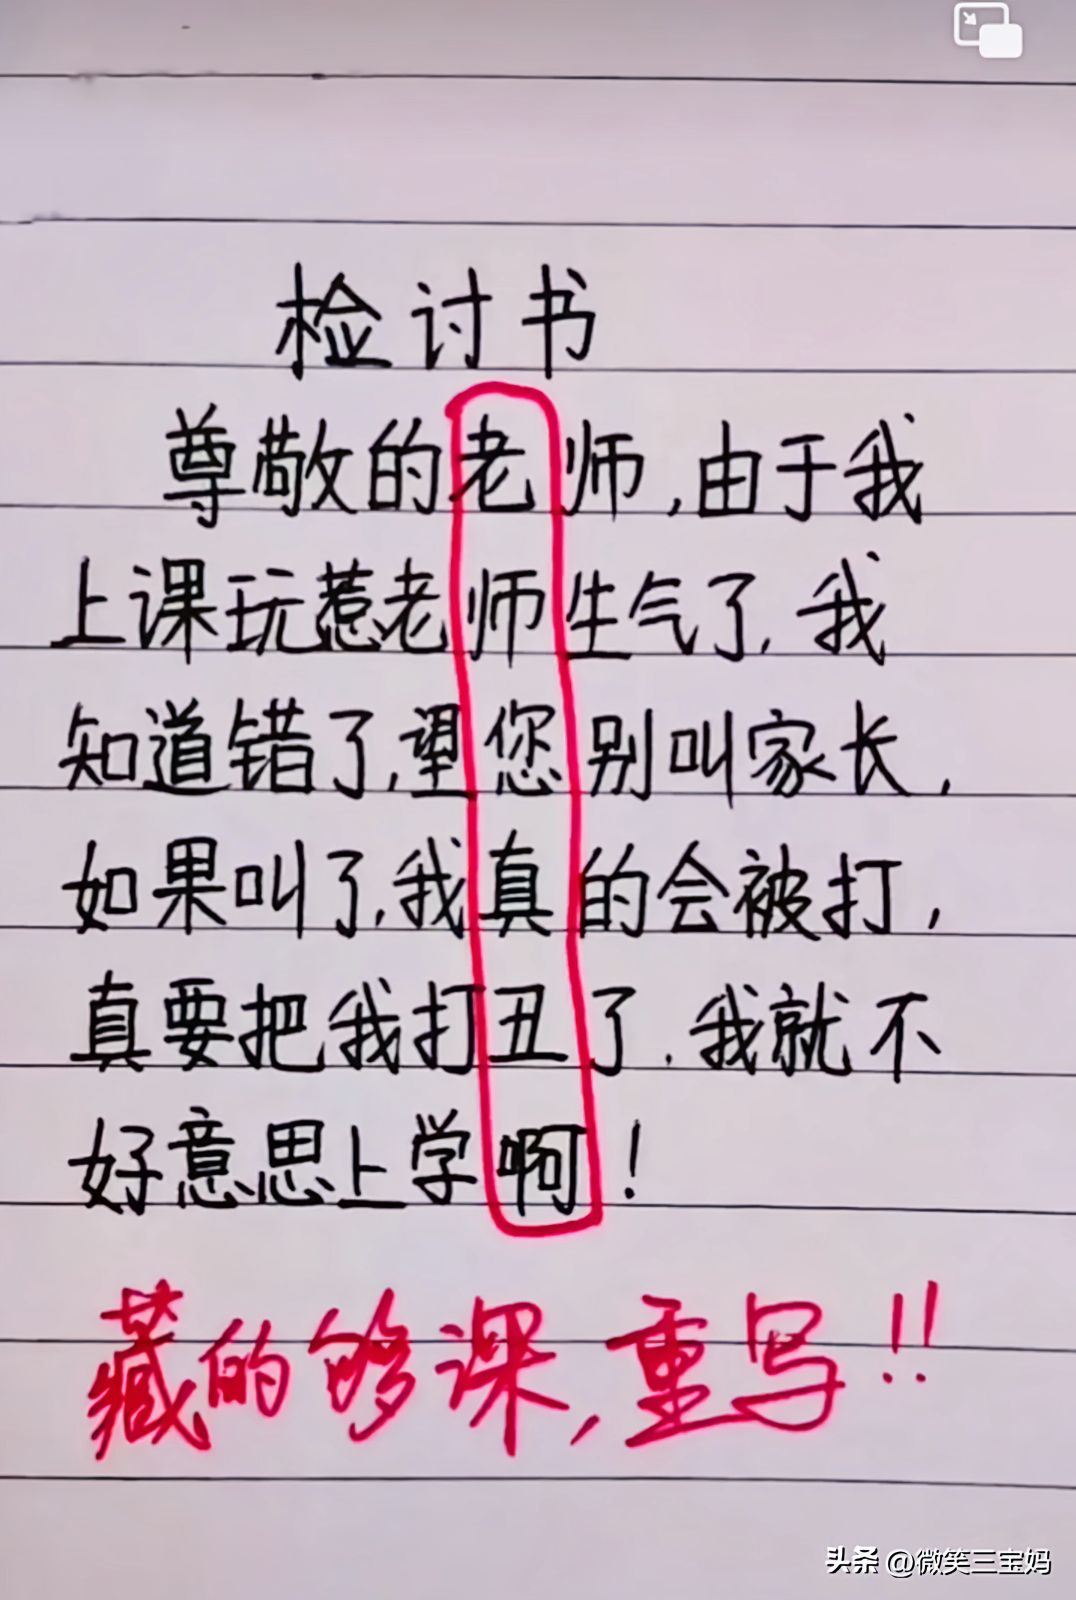 检讨书
尊敬的老师,由于我
上课玩惹老师生气了,我
知道错了,望您别叫家长,
如果叫了,我真的会被打,
真要把我打丑了,我就不
好意思上学啊!
藏的够课,重写!!
头条 @微笑三宝妈